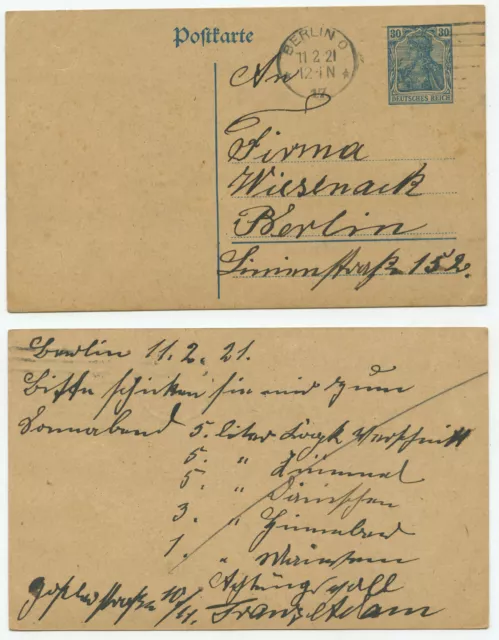 Postkarte
BERLIN O
11 2 21
12-1N
17
30 30
DEUTSCHES REICH
An
Firma
Wiesenack
Berlin
Linienstraße 152.
Berlin 11. 2. 21.
Bitte schicken sie mir zum
Sonnabend 5. liter Verschnitt
5. " Kümmel
5. "
3. " Himmbeer
1. "
Achtungsvoll
10/11. Franz Adam